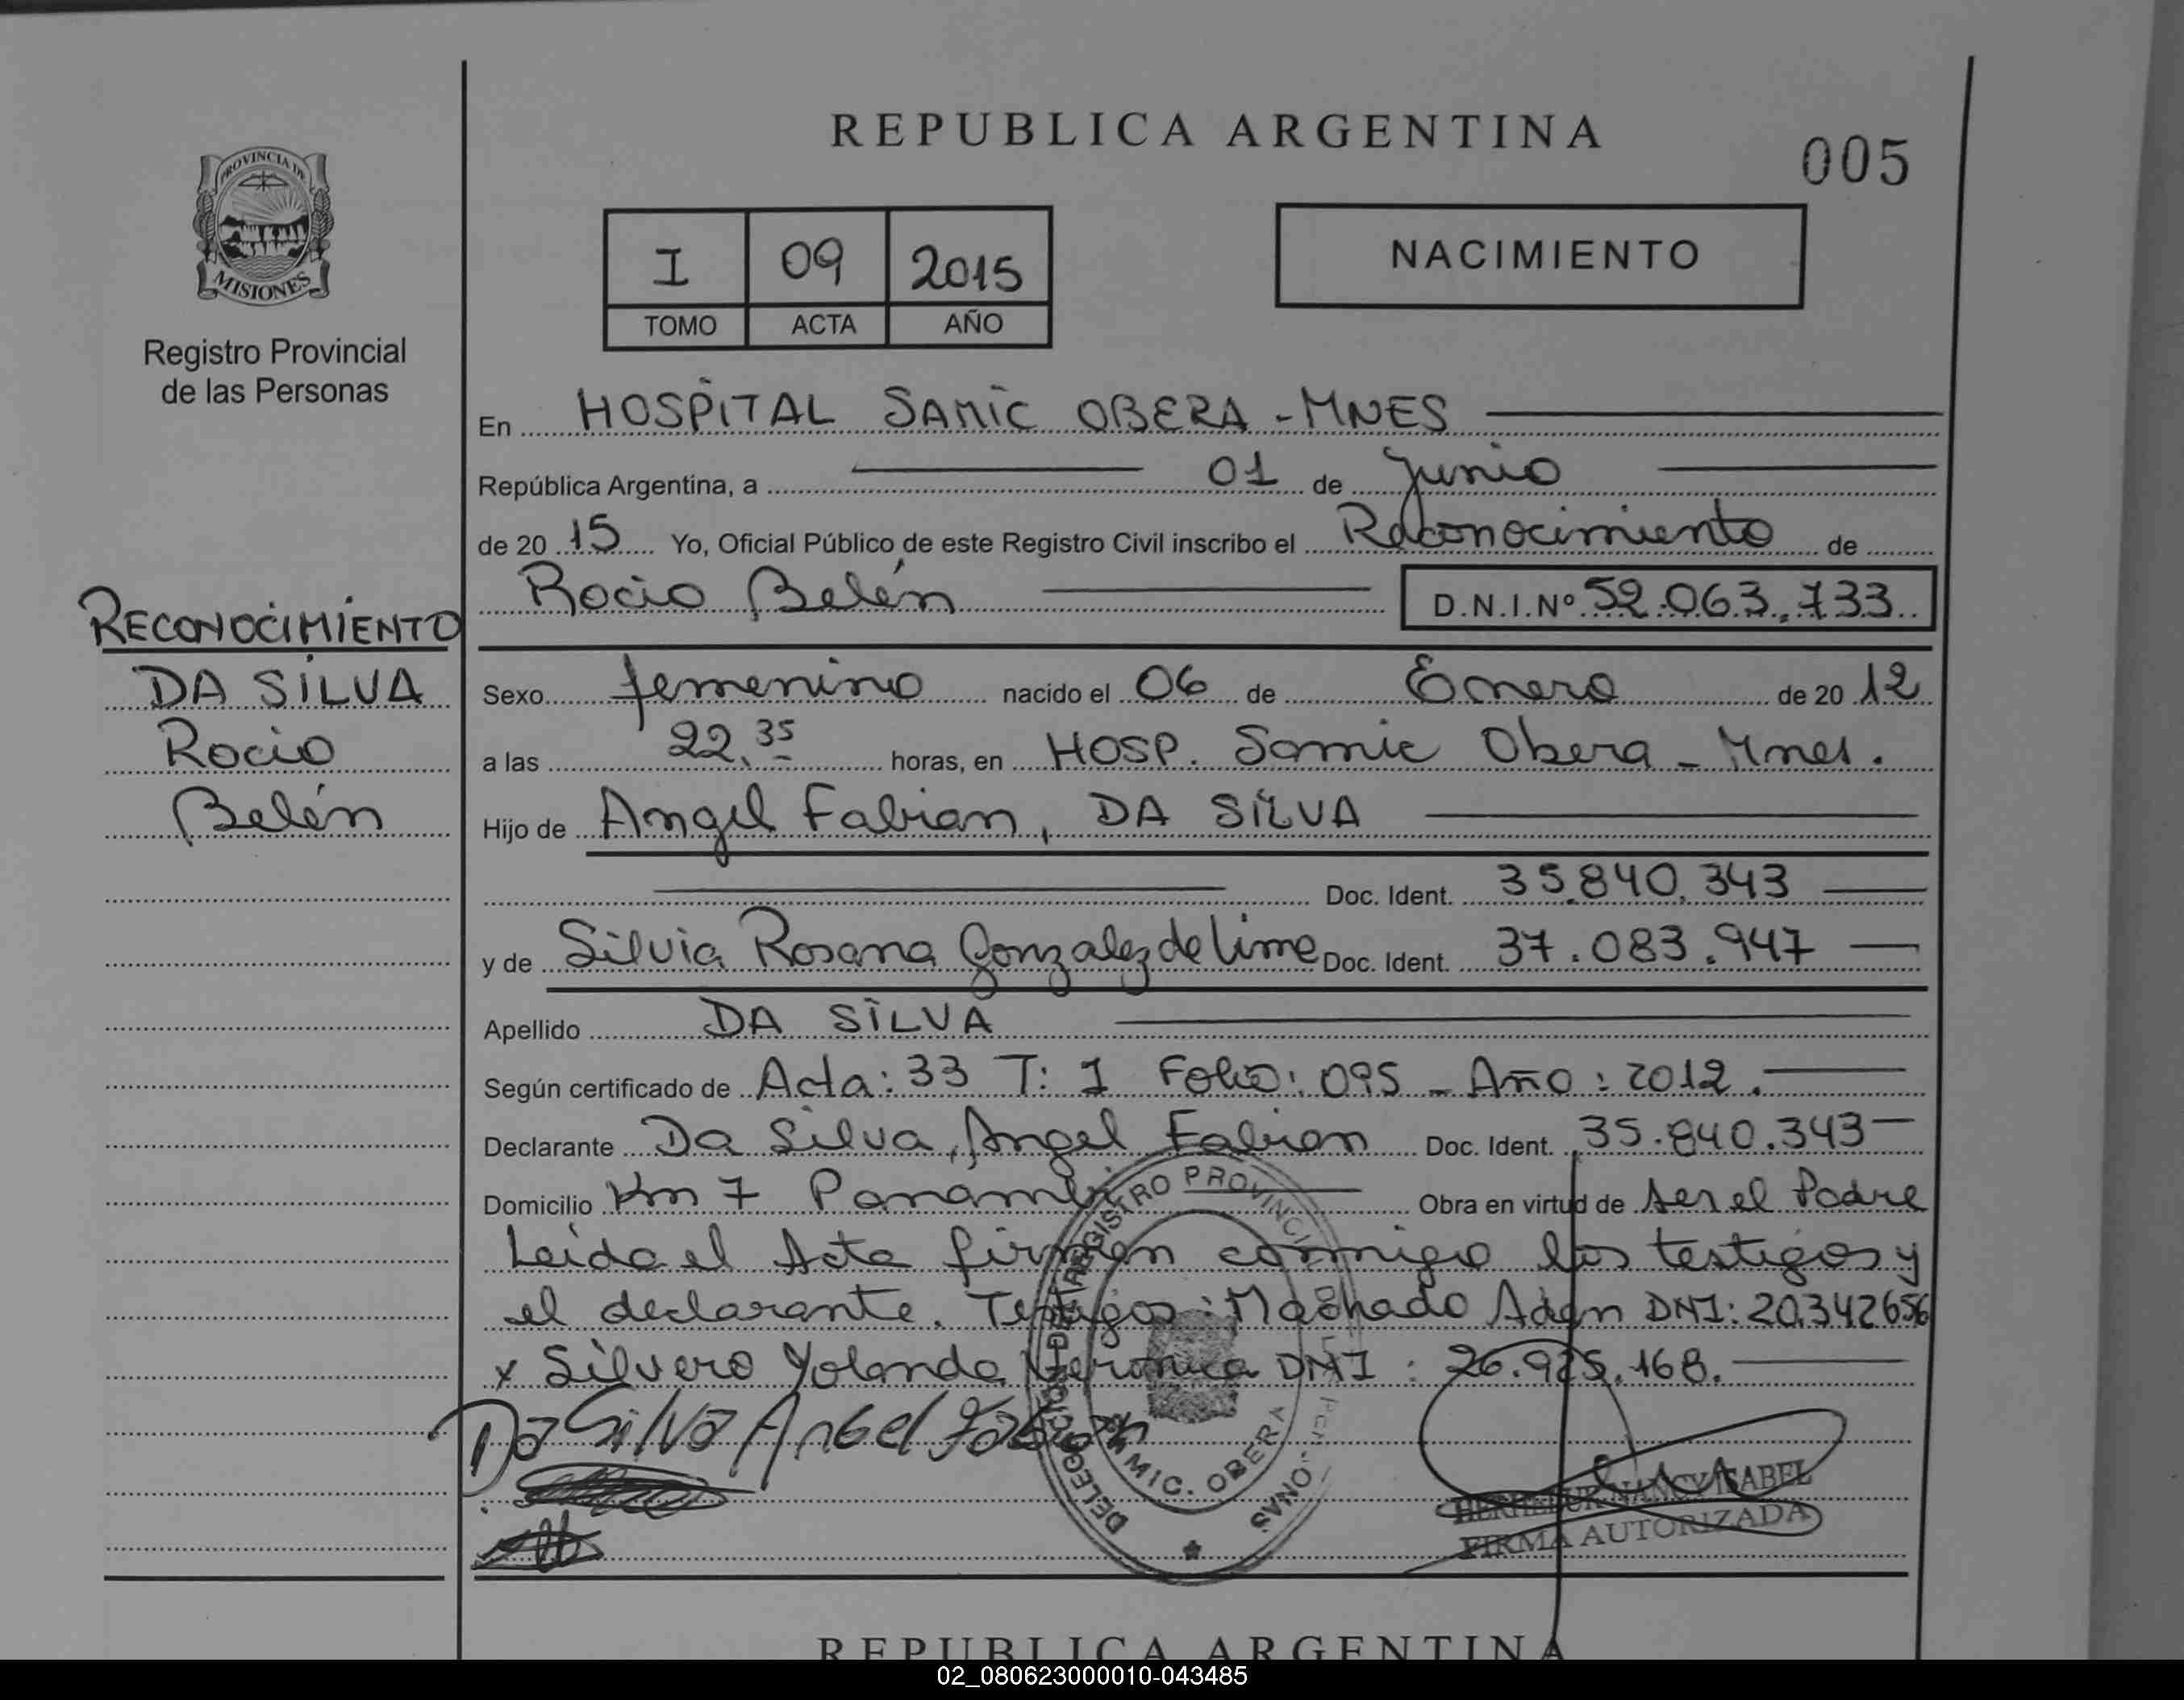 REPUBLICA ARGENTINA
005
PROVINCIA DE
MISIONES
Registro Provincial
de las Personas
I 09 2015
TOMO ACTA AÑO
NACIMIENTO
En HOSPITAL SAMIC OBERA - MNES
República Argentina, a 01 de Junio
de 20 15 Yo, Oficial Público de este Registro Civil inscribo el Reconocimiento de
Rocio Belén D.N.I.Nº 52.063.733
RECONOCIMIENTO
DA SILVA
Rocio
Belén
Sexo femenino nacido el 06 de Enero de 20 12
a las 22.35 horas, en HOSP. Samic Obera - Mnes.
Hijo de Angel Fabian, DA SILVA
Doc. Ident. 35.840.343
y de Silvia Rosana Gonzalez de Lima Doc. Ident. 37.083.947
Apellido DA SILVA
Según certificado de Acta: 33 T: I Folio: 095 - Año: 2012.
Declarante Da Silva, Angel Fabian Doc. Ident. 35.840.343
Domicilio Km 7 Panambi Obra en virtud de ser el Padre
Leida el Acta firman conmigo los testigos y
el declarante. Testigos: Machado Adan DNI: 20.342656
x Silvero Yolanda Veronica DNI: 26.925.168.
Da Silva Angel Fabian
DELEGACION REGISTRO PROVINCIAL PERSONAS
OBERA
NANCY ISABEL
FIRMA AUTORIZADA
REPUBLICA ARGENTINA
02_080623000010-043485